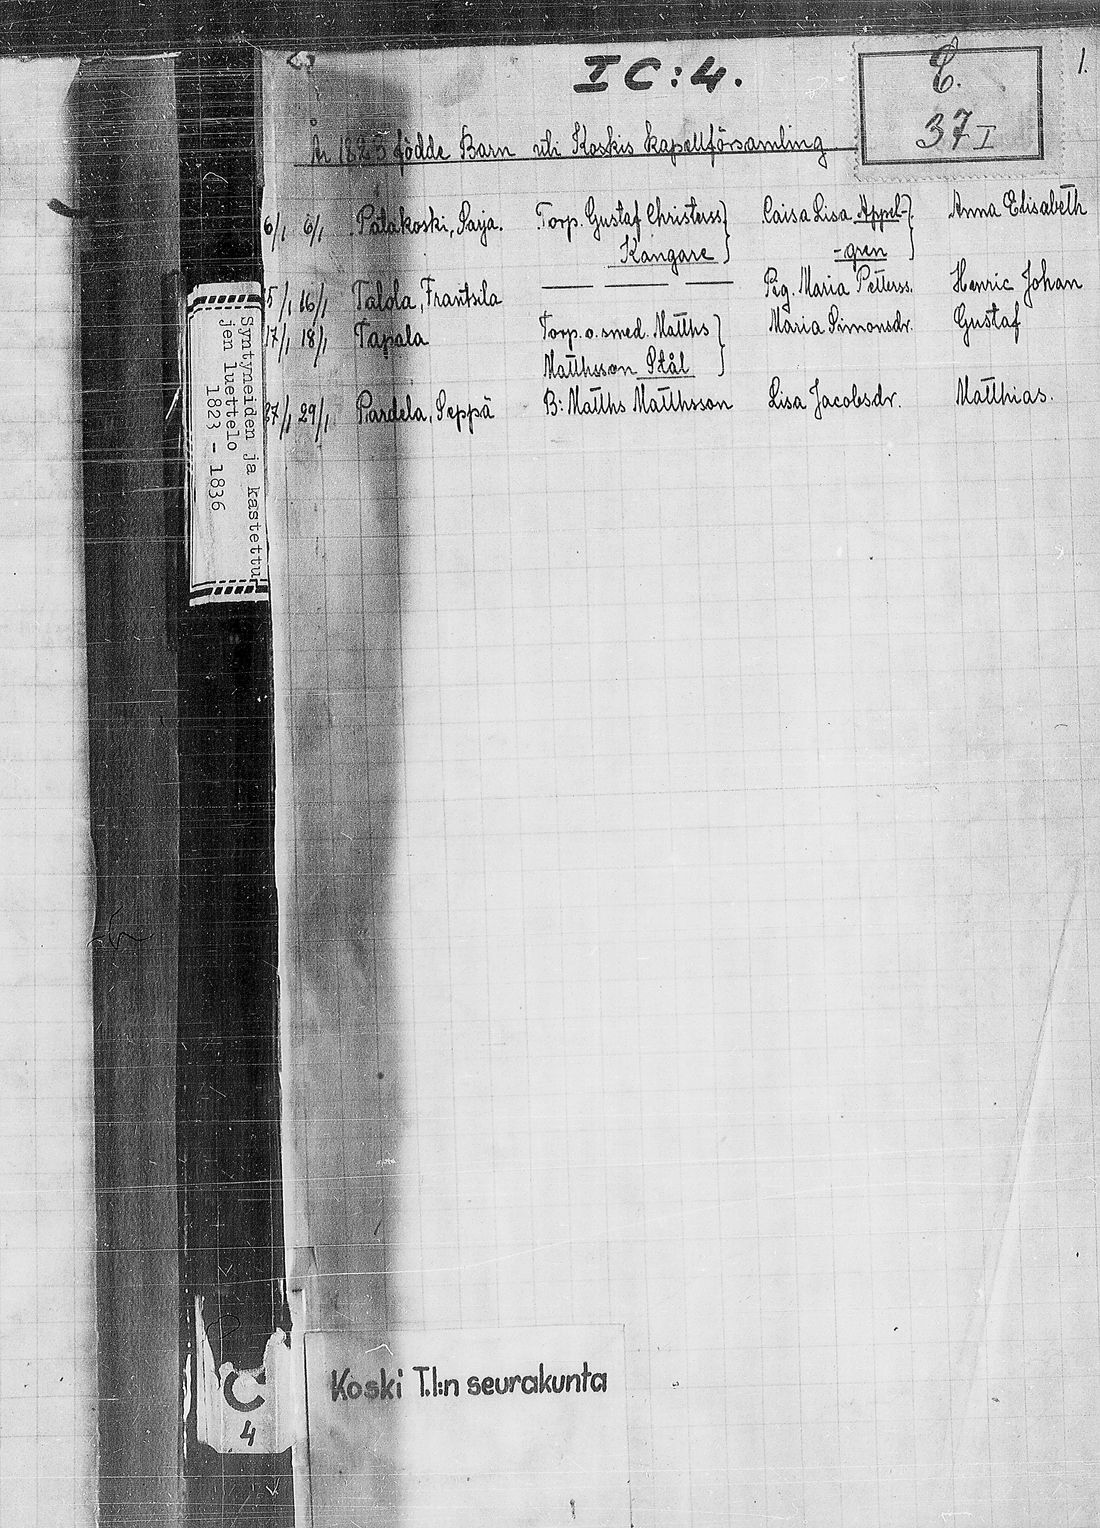 I C:4.
C.
37 I
1.
År 1823 födde Barn uti Koskis kapellförsamling
6/1 6/1 Patakoski, Saija. Torp. Gustaf Christerss Caisa Lisa Appel- Anna Elisabeth
Kangare -gren
15/1 16/1 Talola, Frantsila — — — Pig. Maria Petterss. Henric Johan
17/1 18/1 Tapala Torp. o. smed. Matths Maria Simonsdr. Gustaf
Matthsson Stål
27/1 29/1 Pardela, Seppä B: Matths Matthsson Lisa Jacobsdr. Matthias.
Syntyneiden ja kastettu
jen luettelo
1823 - 1836
C
4
Koski T.l:n seurakunta